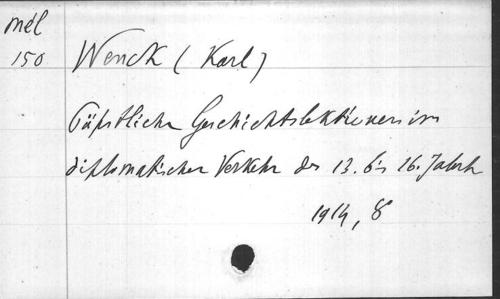 mél
150
Wenck (Karl)
Päpstliche Geschichtslektionen im
diplomatischen Verkehr des 13. bis 16. Jahrh
1914, 8°